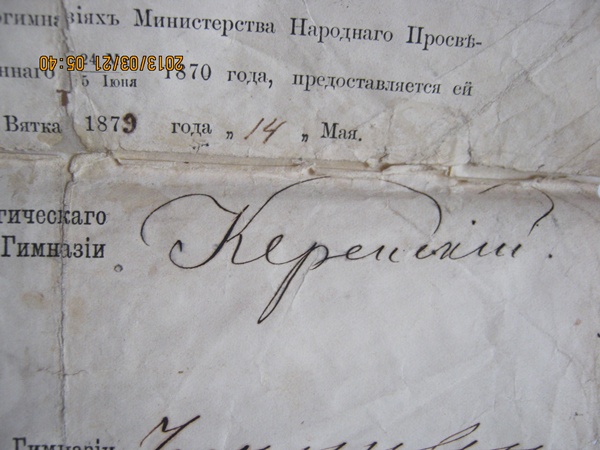 огимназіяхъ Министерства Народнаго Просвѣ-
2013/03/21 05:40
ннаго 24 М 1870 года, предоставляется ей
5 Іюня
Вятка 1879 года „ 14 „ Мая.
гическаго
Гимназіи
Керенскій.
Гимназіи